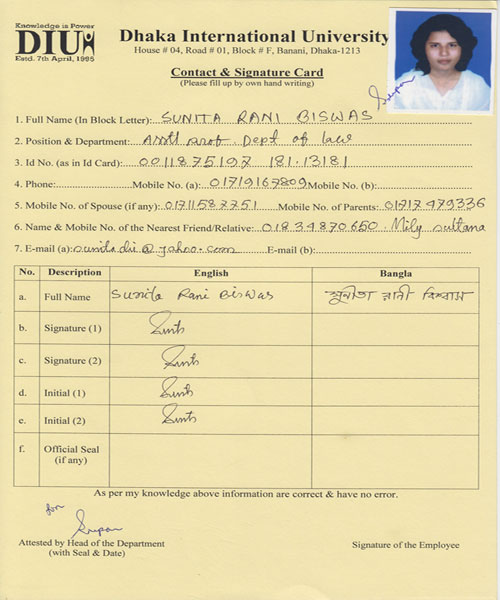 Knowledge is Power
DIU
Estd. 7th April, 1995
Dhaka International University
House # 04, Road # 01, Block # F, Banani, Dhaka-1213
Contact & Signature Card
(Please fill up by own hand writing)
1. Full Name (In Block Letter): SUNITA RANI BISWAS
2. Position & Department: Asstt prof. Dept of law
3. Id No. (as in Id Card): 0011875197 181.13181
4. Phone: Mobile No. (a): 01719167809 Mobile No. (b):
5. Mobile No. of Spouse (if any): 01711587751 Mobile No. of Parents: 01717 479336
6. Name & Mobile No. of the Nearest Friend/Relative: 01834870650. Mily sultana
7. E-mail (a): E-mail (b):
No. Description English Bangla
a. Full Name Sunita Rani Biswas সুনীতা রানী বিশ্বাস
b. Signature (1)
c. Signature (2)
d. Initial (1)
e. Initial (2)
f. Official Seal (if any)
As per my knowledge above information are correct & have no error.
for
Attested by Head of the Department Signature of the Employee
(with Seal & Date)